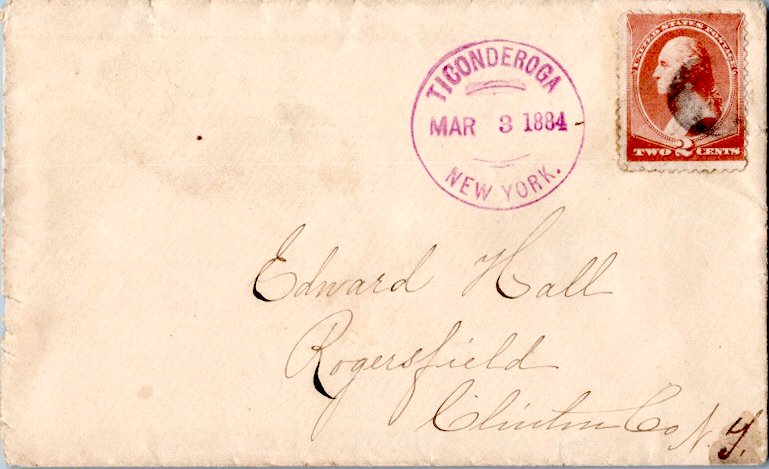 TICONDEROGA
MAR 3 1884
NEW YORK.
UNITED STATES POSTAGE
TWO 2 CENTS
Edward Hall
Rogersfield
Clinton Co N.Y.